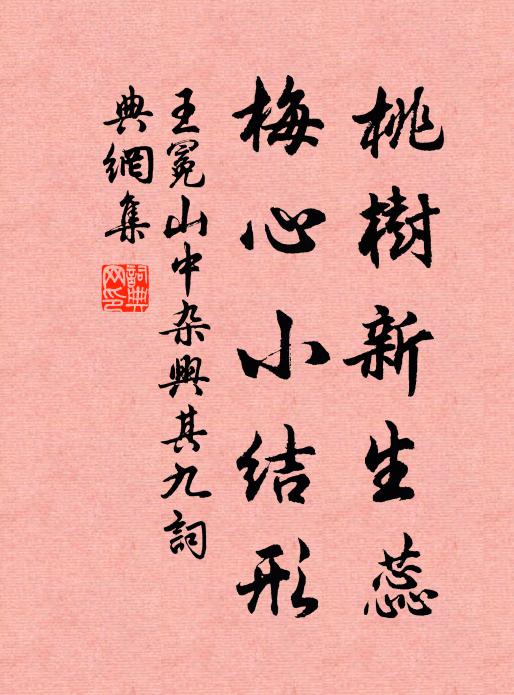 桃樹新生蕊
梅心小結形
王冕山中杂興其九詞
典網集
詞典网印